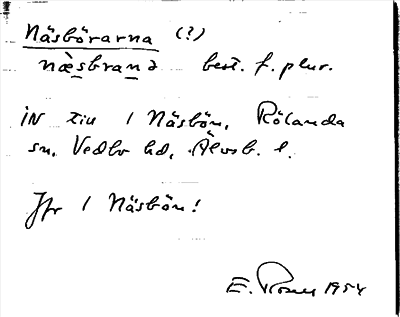 Näsbörarna (?)
næsbrana best. f. plur.
IN till 1 Näsbön, Rölanda
sn, Vedbo hd, Älvsb. l.
Jfr 1 Näsbön!
E. Rosell 1954